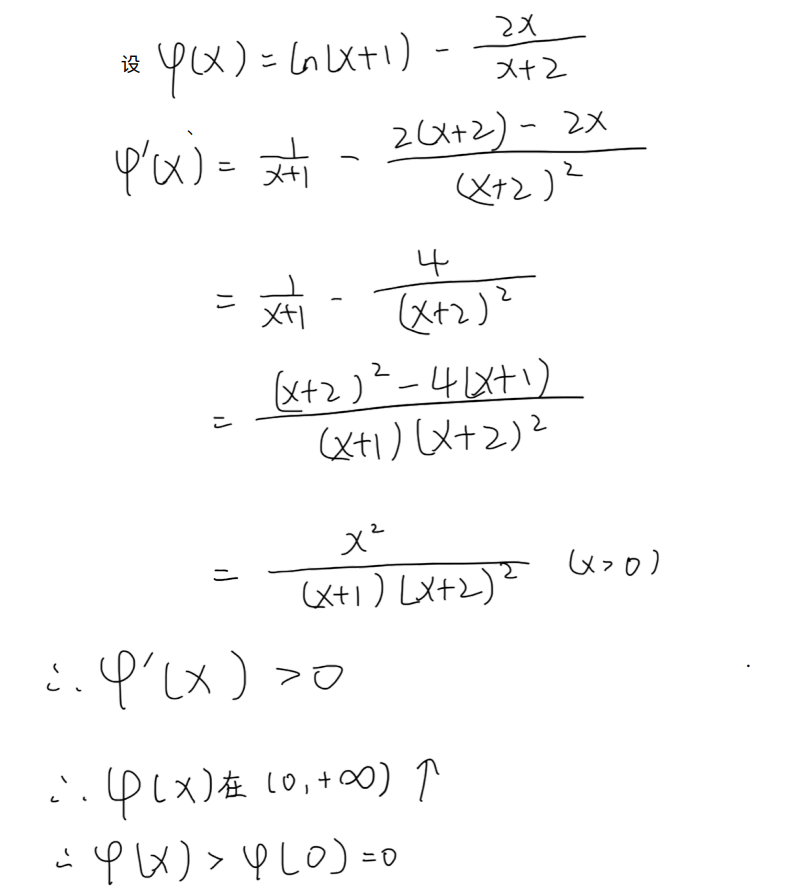 设 φ(x) = ln(x+1) - 2x/(x+2)
φ'(x) = 1/(x+1) - (2(x+2) - 2x)/(x+2)²
= 1/(x+1) - 4/(x+2)²
= ((x+2)² - 4(x+1))/((x+1)(x+2)²)
= x²/((x+1)(x+2)²) (x>0)
∴ φ'(x) >0
∴ φ(x)在 (0,+∞) ↑
∴ φ(x) > φ(0) =0